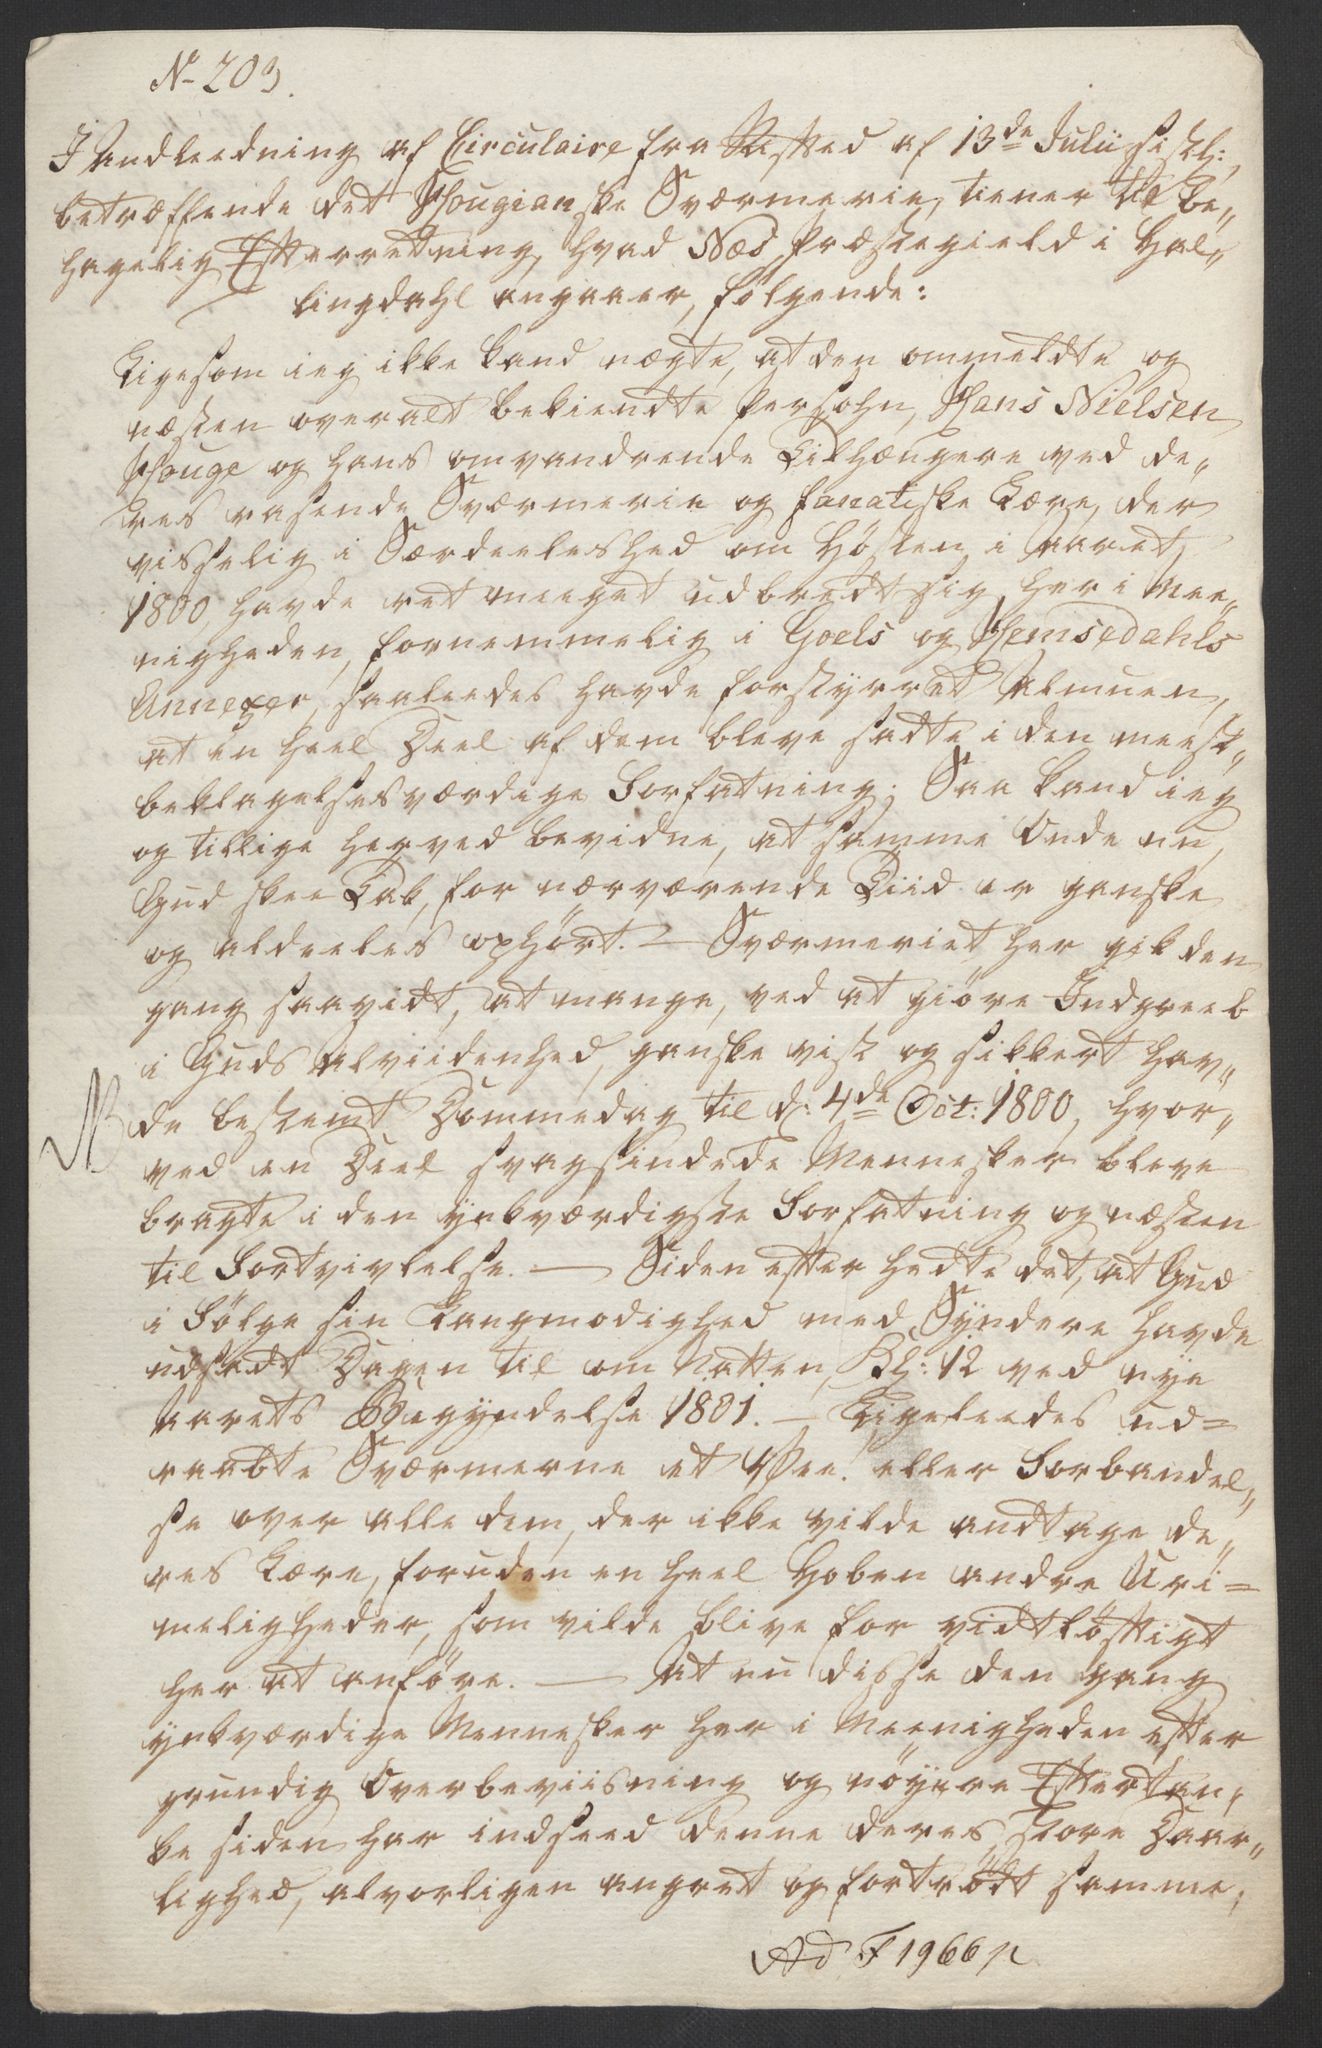 No 203.
I Andledning af Circulaire fra Rasted af 13de Julii sistl:,
betræffende det Hougianske Sværmerie, tiener til be„
hagelig Efterretning, hvad Næs Præstegield i Hal„
lingdahl angaaer, følgende:
Ligesom ieg ikke kand nægte, at den ommeldte og
næsten overalt bekiendte Persohn, Hans Nielsen
Houge og hans omvandrende Tilhængere ved de„
res rasende Sværmerie og fanatiske Lære, der
visselig i Særdeeleshed om Høsten i Aaret
1800, havde ret meeget udbredt sig her i Mee„
nigheden, fornemmelig i Goels og Hemsedahls
Annexer, saaleedes havde forstyrret Almuen,
at en heel Deel af dem bleve satte i den meest„
beklagelsesværdige Forfatning; Saa kand ieg
og tillige herved bevidne, at samme Onde nu,
Gud skee Lov, for nærværende Tiid er ganske
og aldeeles ophørt. – Sværmeriet her gik den
gang saavidt, at mange, ved at giøre Indgreeb
i Guds Alviidenhed, ganske vist og sikkert hav„
NB
de bestemt Dommedag til d: 4de Oct: 1800, hvor„
ved en Deel svagsindede Mennesker bleve
bragte i den ynkværdigste Forfatning og næsten
til Fortvivlelse. — Siden efter hedte det, at Gud
i Følge sin Langmodighed med Syndere havde
udsadt Dagen til om Natten, Kl: 12 ved nye
Aarets Begyndelse 1801. – Ligeleedes ud=
raabte Sværmerne et Vee! eller Forbandel„
se over alle dem, der ikke vilde andtage de„
res Lære, foruden en heel Hoben andre Uri=
meligheder, som vilde blive for vidtløftigt
her at anføre. — At nu disse den gang
ynkværdige Mennesker her i Meenigheden efter
grundig Overbeviisning og nøyere Eftertan„
ke siden har indseed denne deres store Daar„
lighed, alvorligen angret og fortrødt samme,
Ad F 1966 /